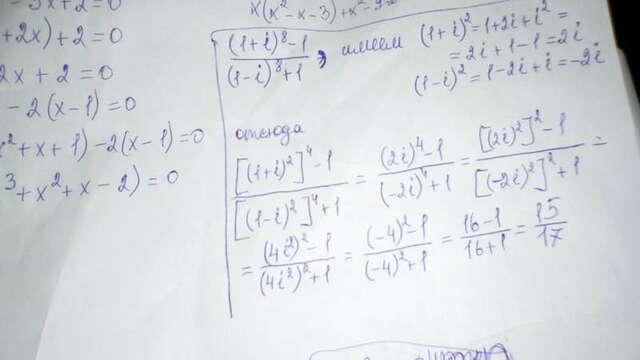 - 3x + 2 = 0
+ 2x) + 2 = 0
2x + 2 = 0
- 2(x - 1) = 0
x² + x + 1) - 2(x - 1) = 0
³ + x² + x - 2) = 0
x(x² - x - 3) + x² -
((1+i)⁸ - 1)/((1-i)⁸ + 1), имеем (1+i)² = 1 + 2i + i² =
= 2i + 1 - 1 = 2i
(1-i)² = 1 - 2i + i = -2i
отсюда
([(1+i)²]⁴ - 1)/([(1-i)²]⁴ + 1) = ((2i)⁴ - 1)/((-2i)⁴ + 1) = ([(2i)²]² - 1)/([(-2i)²]² + 1) =
= ((4i²)² - 1)/((4i²)² + 1) = ((-4)² - 1)/((-4)² + 1) = (16 - 1)/(16 + 1) = 15/17